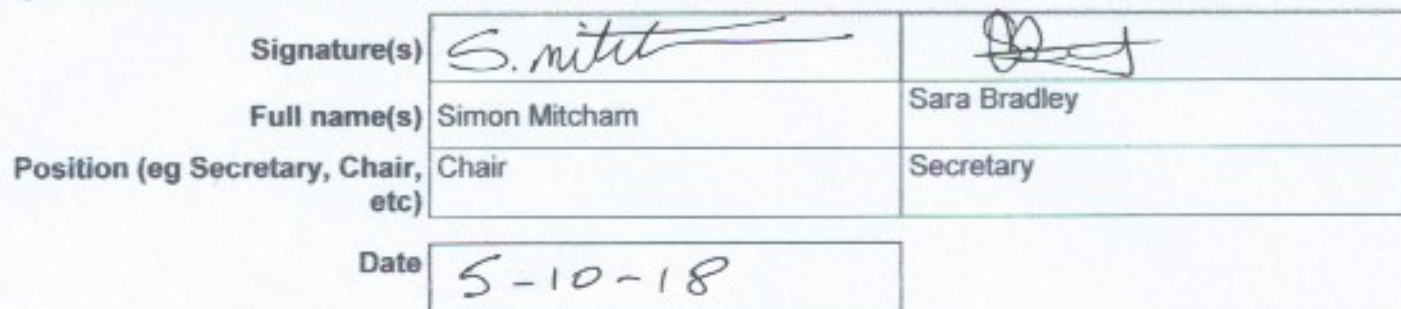 Signature(s) S. Mitch
Full name(s) Simon Mitcham Sara Bradley
Position (eg Secretary, Chair, Chair Secretary
etc)
Date 5-10-18